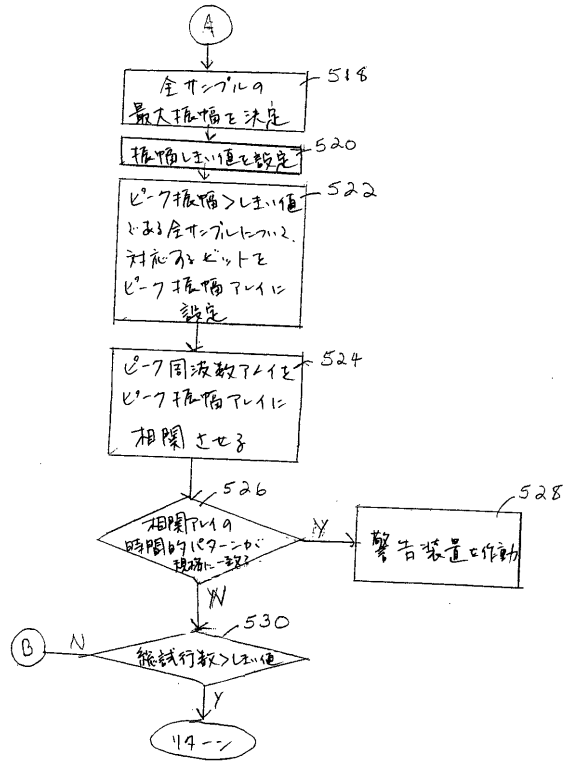 A
518
全サンプルの
最大振幅を決定
520
振幅しきい値を設定
522
ピーク振幅>しきい値
である全サンプルについて、
対応するビットを
ピーク振幅アレイに
設定
524
ピーク周波数アレイを
ピーク振幅アレイに
相関させる
526
相関アレイの
時間的パターンが
規格に一致する
Y
528
警告装置を作動
N
530
B
N
総試行数>しきい値
Y
リターン